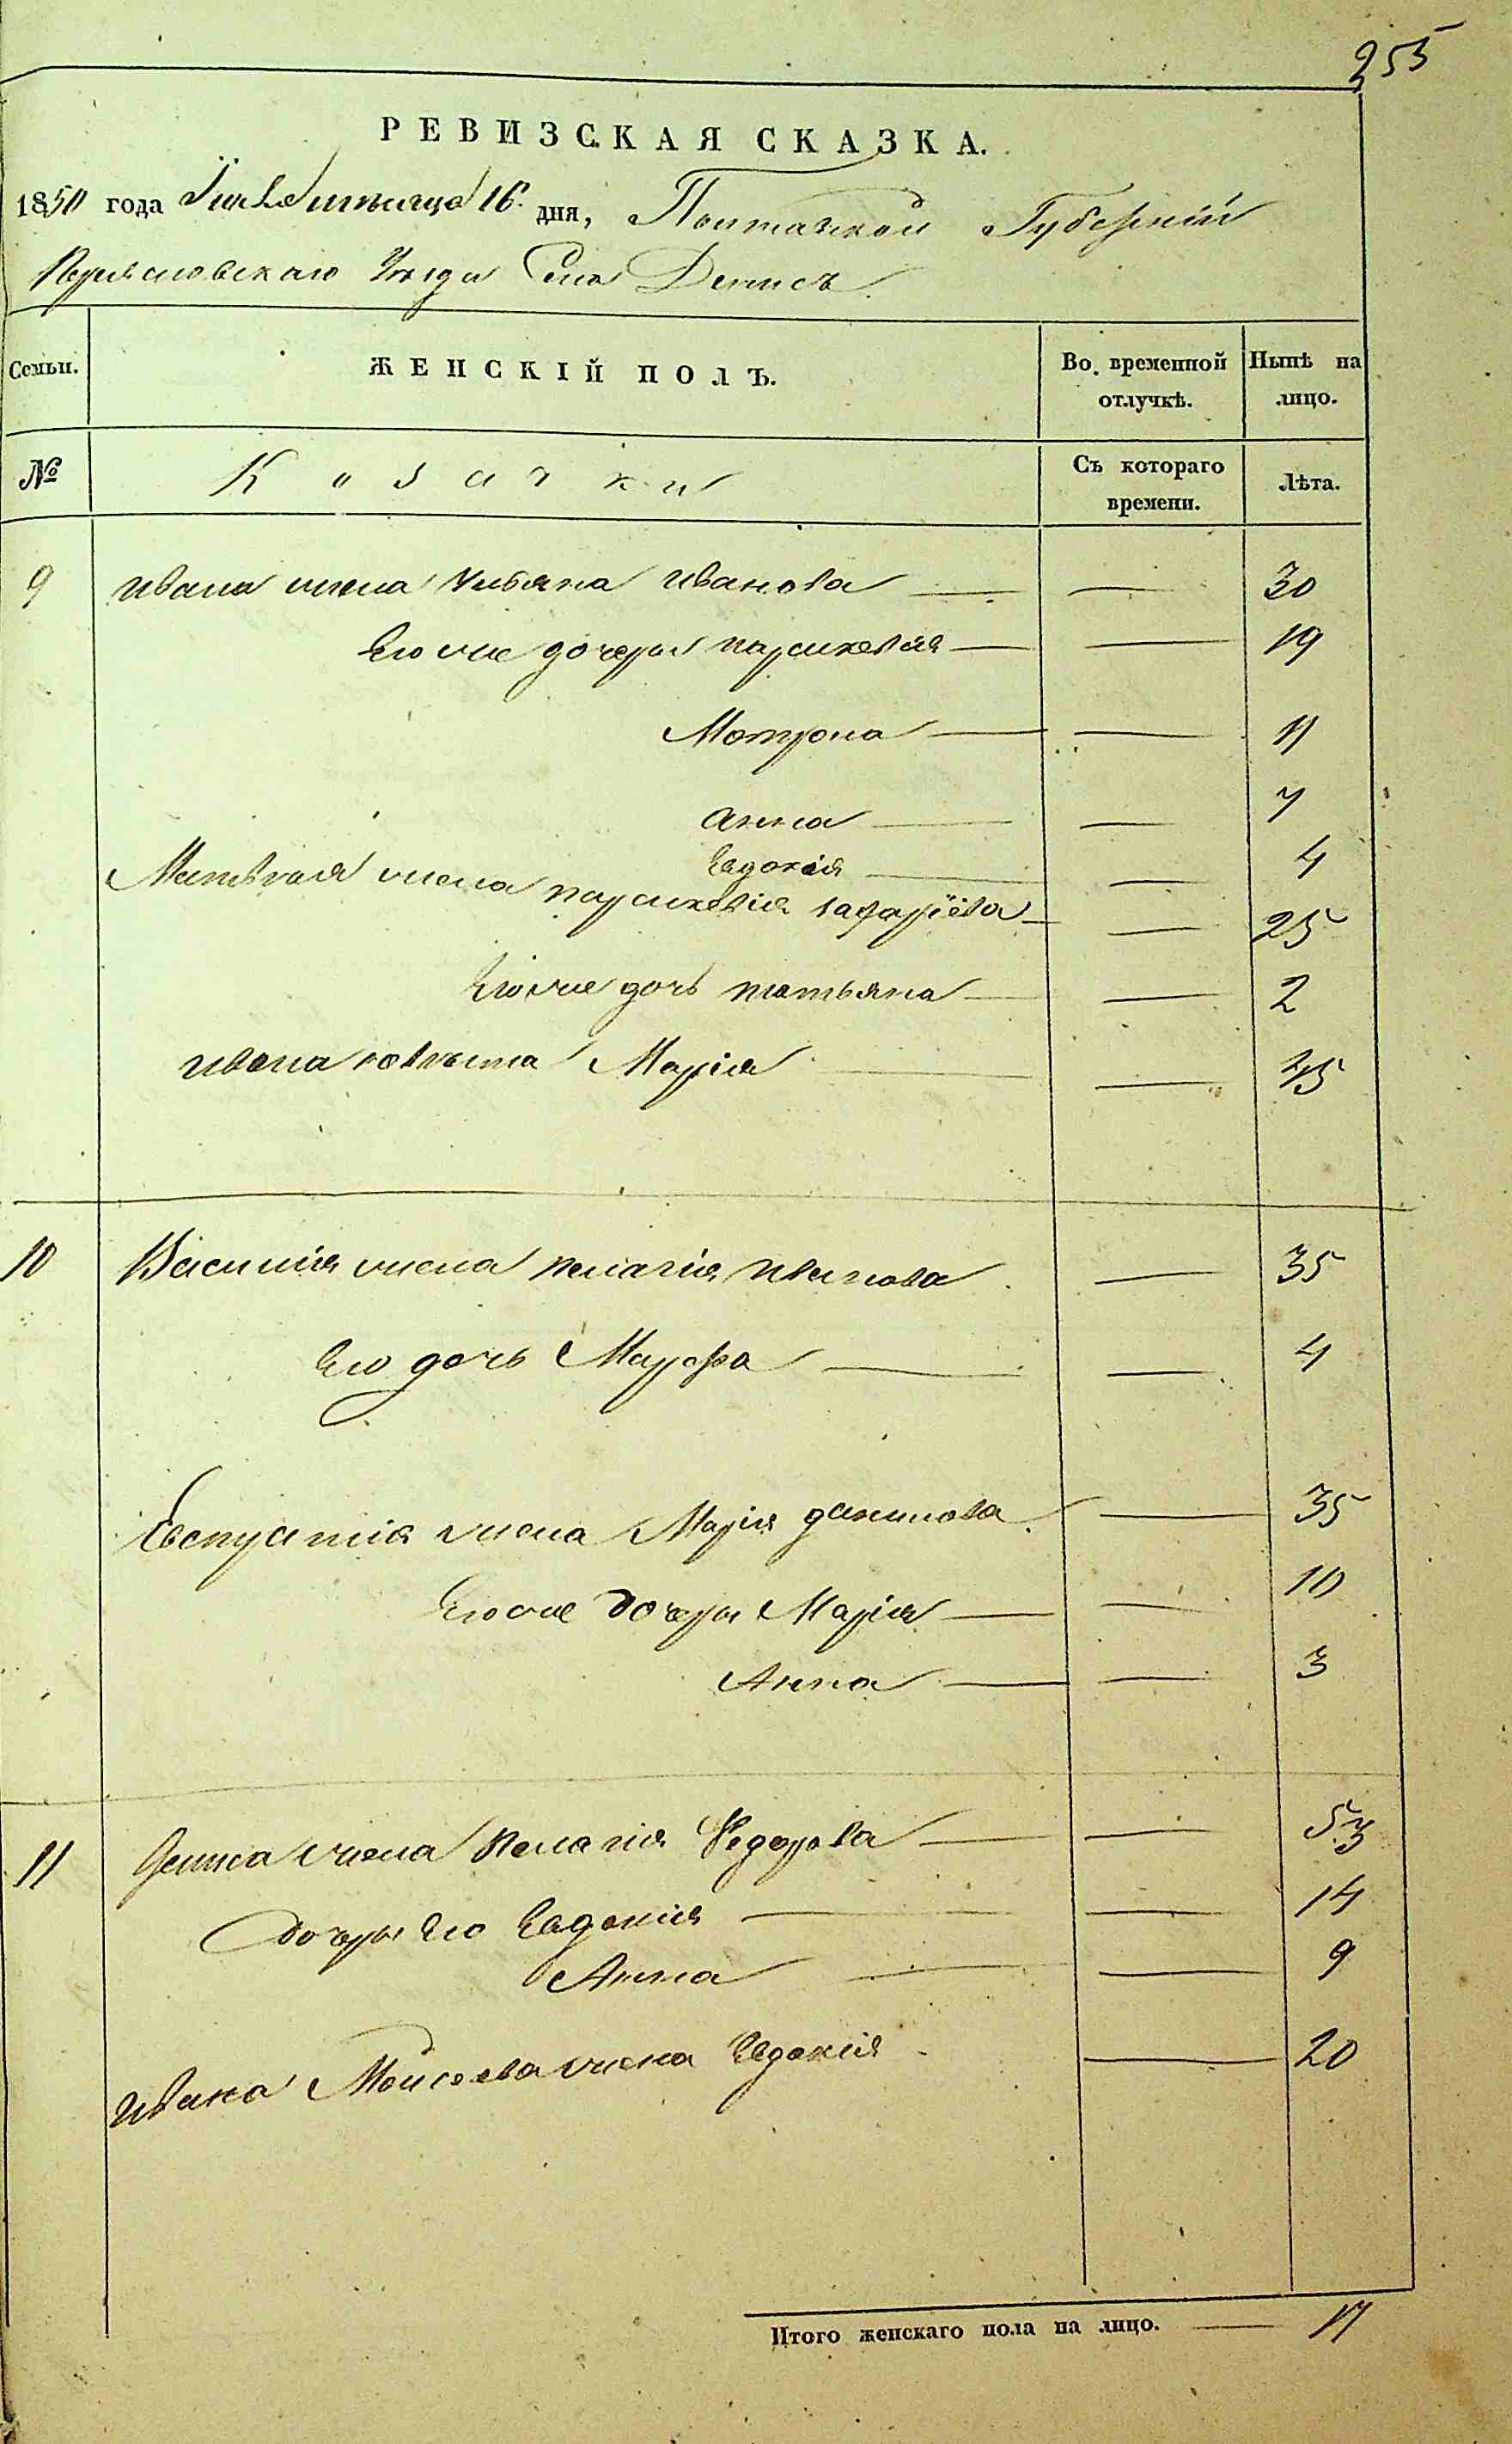 255
РЕВИЗСКАЯ СКАЗКА.
1850 года Іюля месяца 16 дня, Полтавской Губерніи
Переяславскаго Уезда Села Денисъ
Семьи. ЖЕНСКІЙ ПОЛЪ. Во временной отлучкѣ. Нынѣ на лицо.
№ Козачки Съ котораго времени. Лѣта.
9 Ивана жена Ульяна Иванова — — 30
Его же дочери Параскевія — — 19
Мотрона — — 11
Анна — — 7
Евдокія — — 4
Матвея жена Параскевія Захаріева — — 25
Его же дочь Татьяна — — 2
Ивана невестка Марія — — 45
10 Василія жена Пелагія Иванова — 35
Его дочь Марфа — — 4
Евстратія жена Марія Данилова — 35
Его же дочери Марія — — 10
Анна — — 3
11 жена Пелагія Федорова — — 53
Дочери Его Евдокія — — 14
Анна — — 9
Ивана Моисеева жена Евдокія — 20
Итого женскаго пола на лицо. — 17